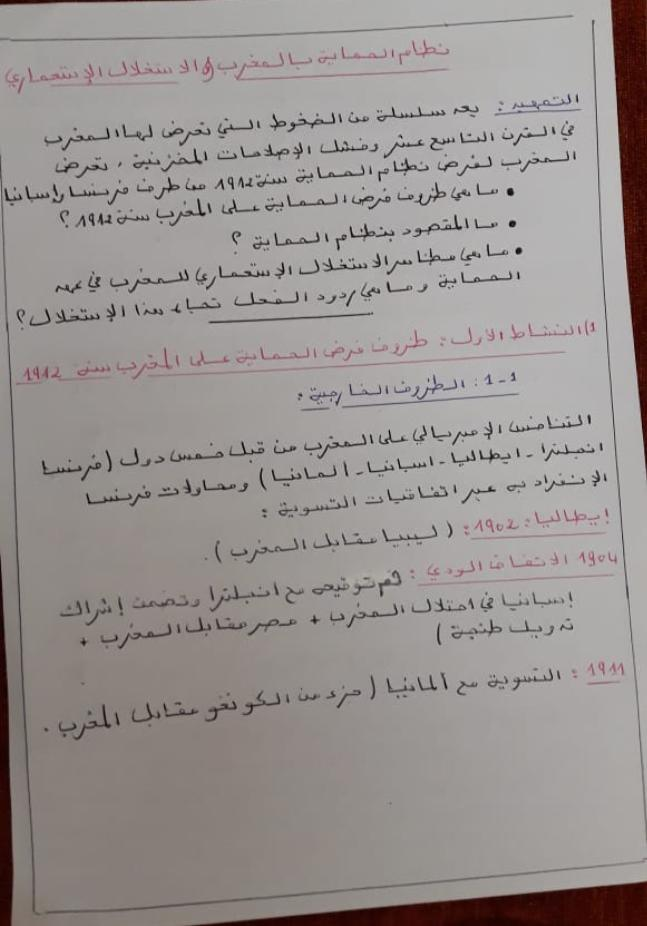 نظام الحماية بالمغرب و الاستغلال الإستعماري
التمهيد: بعد سلسلة من الضغوط التي تعرض لها المغرب
في القرن التاسع عشر وفشل الإصلاحات المخزنية، تعرض
المغرب لفرض نظام الحماية سنة 1912 من طرف فرنسا وإسبانيا
• ما هي ظروف فرض الحماية على المغرب سنة 1912؟
• ما المقصود بنظام الحماية؟
• ما هي مظاهر الاستغلال الإستعماري للمغرب في عهد
الحماية و ما هي ردود الفعل تجاه هذا الإستغلال؟
1) النشاط الأول: ظروف فرض الحماية على المغرب سنة 1912
1-1: الظروف الخارجية:
التنافس الإمبريالي على المغرب من قبل خمس دول (فرنسا
انجلترا - ايطاليا - اسبانيا - ألمانيا) ومحاولات فرنسا
الإنفراد به عبر اتفاقيات التسوية:
إيطاليا: 1902: (ليبيا مقابل المغرب).
1904 الاتفاق الودي: تم توقيعه مع انجلترا وتضمن إشراك
إسبانيا في احتلال المغرب + مصر مقابل المغرب +
تدويل طنجة)
1911: التسوية مع ألمانيا (جزء من الكونغو مقابل المغرب.